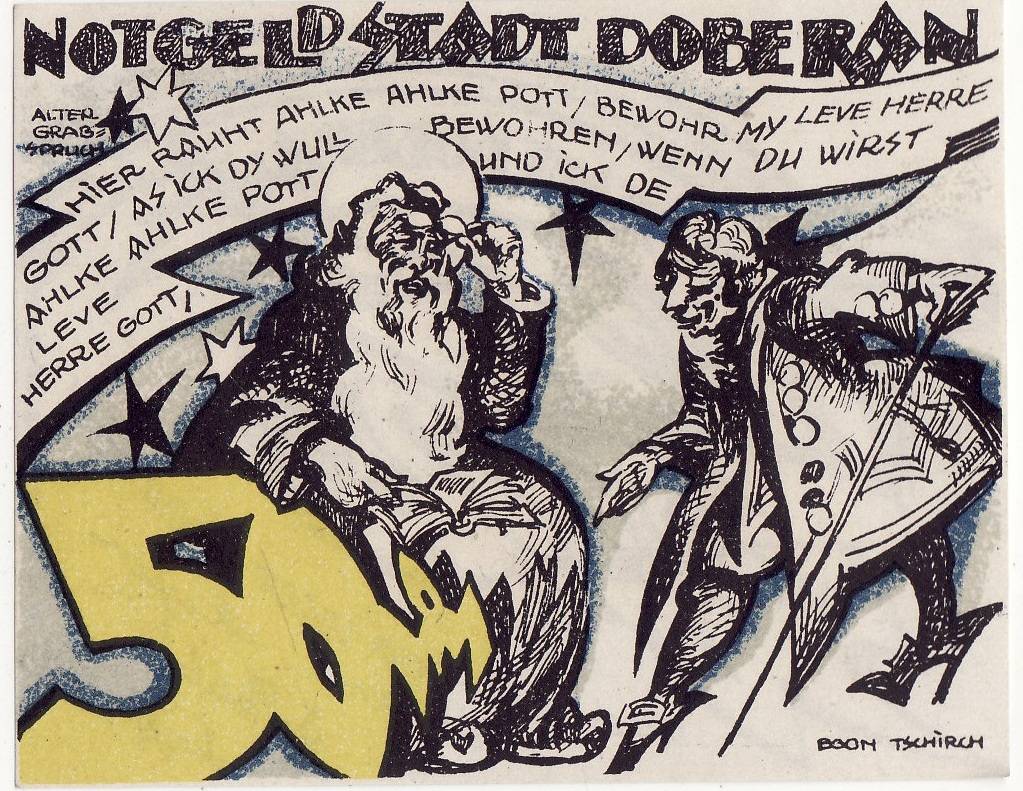 NOTGELD STADT DOBERAN
ALTER
GRAB=
SPRUCH
HIER RAHHT AHLKE AHLKE POTT/ BEWOHR MY LEVE HERRE
GOTT/ AS ICK DY WULL BEWOHREN/ WENN DU WIRST
AHLKE AHLKE POTT UND ICK DE
LEVE
HERRE GOTT/
50
EGON TSCHIRCH